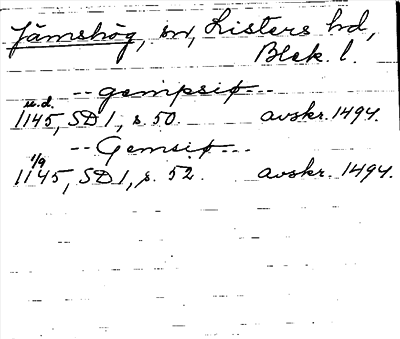 Jämshög, sn, Listers hd,
Blek. l.
-- gempsiø --
u.d.
1145, SD 1, s. 50. avskr. 1494.
-- Gemsiø --
1/9
1145, SD 1, s. 52. avskr. 1494.